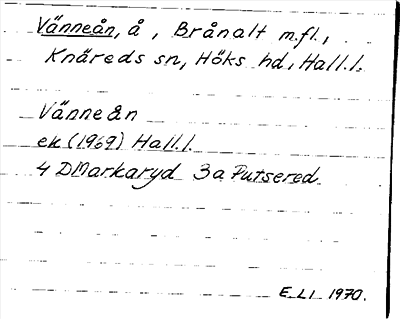 Vänneån, å, Brånalt m.fl.,
Knäreds sn, Höks hd, Hall.l.
Vänneån
ek (1969) Hall.l.
4 D Markaryd 3a Putsered
E.LI 1970.